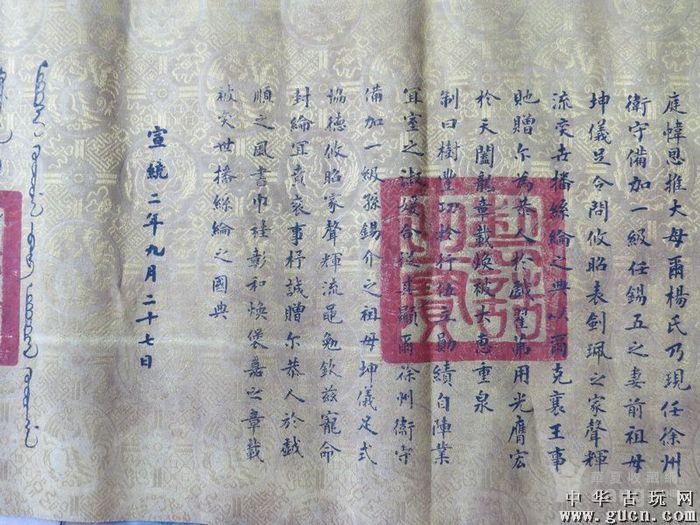 庭幃思推大母爾楊氏乃現任徐州
衛守備加一級任錫五之妻前祖母
坤儀足令問攸昭表劍珮之家聲輝
流奕世播絲綸之典以爾克襄王事
貤贈尔為恭人於戲茞茀用光膺宏
於天闔龍章載煥被大惠重泉
制曰樹豐功於行伍立勛績自陣業
宜室之淑媛命從夫顯爾徐州衛守
備加一級孫錫介之祖母坤儀足式
恊德攸昭家聲輝流黽勉欽兹寵命
封綸宜貴襄事杼誠贈尔恭人於戲
順之風書巾褘彰和煥褒嘉之章載
被奕世播絲綸之國典
宣統二年九月二十七日
華夏收藏網
中华古玩网
www.gucn.com